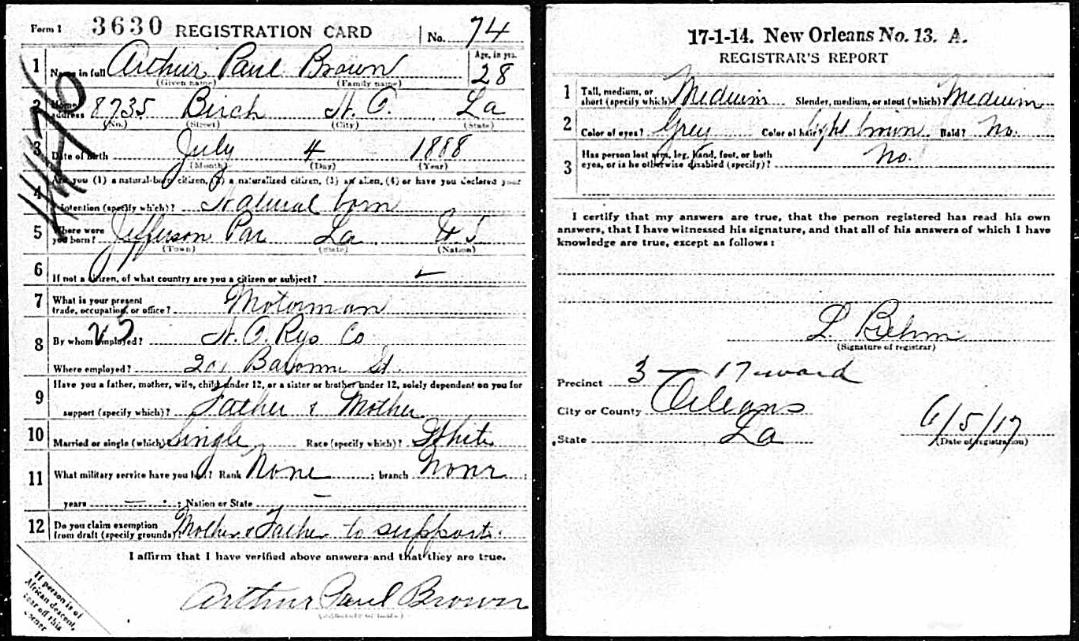 Form 1 3630 REGISTRATION CARD No. 74
1 Name in full Arthur Paul Brown Age, in yrs. 28
(Given name) (Family name)
2 Home address 8735 Birch N. O. La
(No.) (Street) (City) (State)
3 Date of birth July 4 1888
(Month) (Day) (Year)
Are you (1) a natural-born citizen, (2) a naturalized citizen, (3) an alien, (4) or have you declared your
4 intention (specify which)? Natural born
5 Where were you born? Jefferson Par La U S
(Town) (State) (Nation)
6 If not a citizen, of what country are you a citizen or subject?
7 What is your present trade, occupation, or office? Motorman
8 By whom employed? N. O. Rys Co
Where employed? 201 Baronne St.
9 Have you a father, mother, wife, child under 12, or a sister or brother under 12, solely dependent on you for
support (specify which)? Father & Mother
10 Married or single (which)? Single Race (specify which)? White
11 What military service have you had? Rank None ; branch None ;
years ; Nation or State
12 Do you claim exemption from draft (specify grounds)? Mother & Father to support.
I affirm that I have verified above answers and that they are true.
Arthur Paul Brown
If person is of
African descent,
tear off this
corner
17-1-14. New Orleans No. 13. A.
REGISTRAR'S REPORT
1 Tall, medium, or short (specify which)? Medium Slender, medium, or stout (which)? Medium
2 Color of eyes? Grey Color of hair? light brown Bald? No.
3 Has person lost arm, leg, hand, foot, or both
eyes, or is he otherwise disabled (specify)? No.
I certify that my answers are true, that the person registered has read his own
answers, that I have witnessed his signature, and that all of his answers of which I have
knowledge are true, except as follows:
L. Behm
(Signature of registrar)
Precinct 3 - 17 ward
City or County Orleans
State La 6/5/17
(Date of registration)